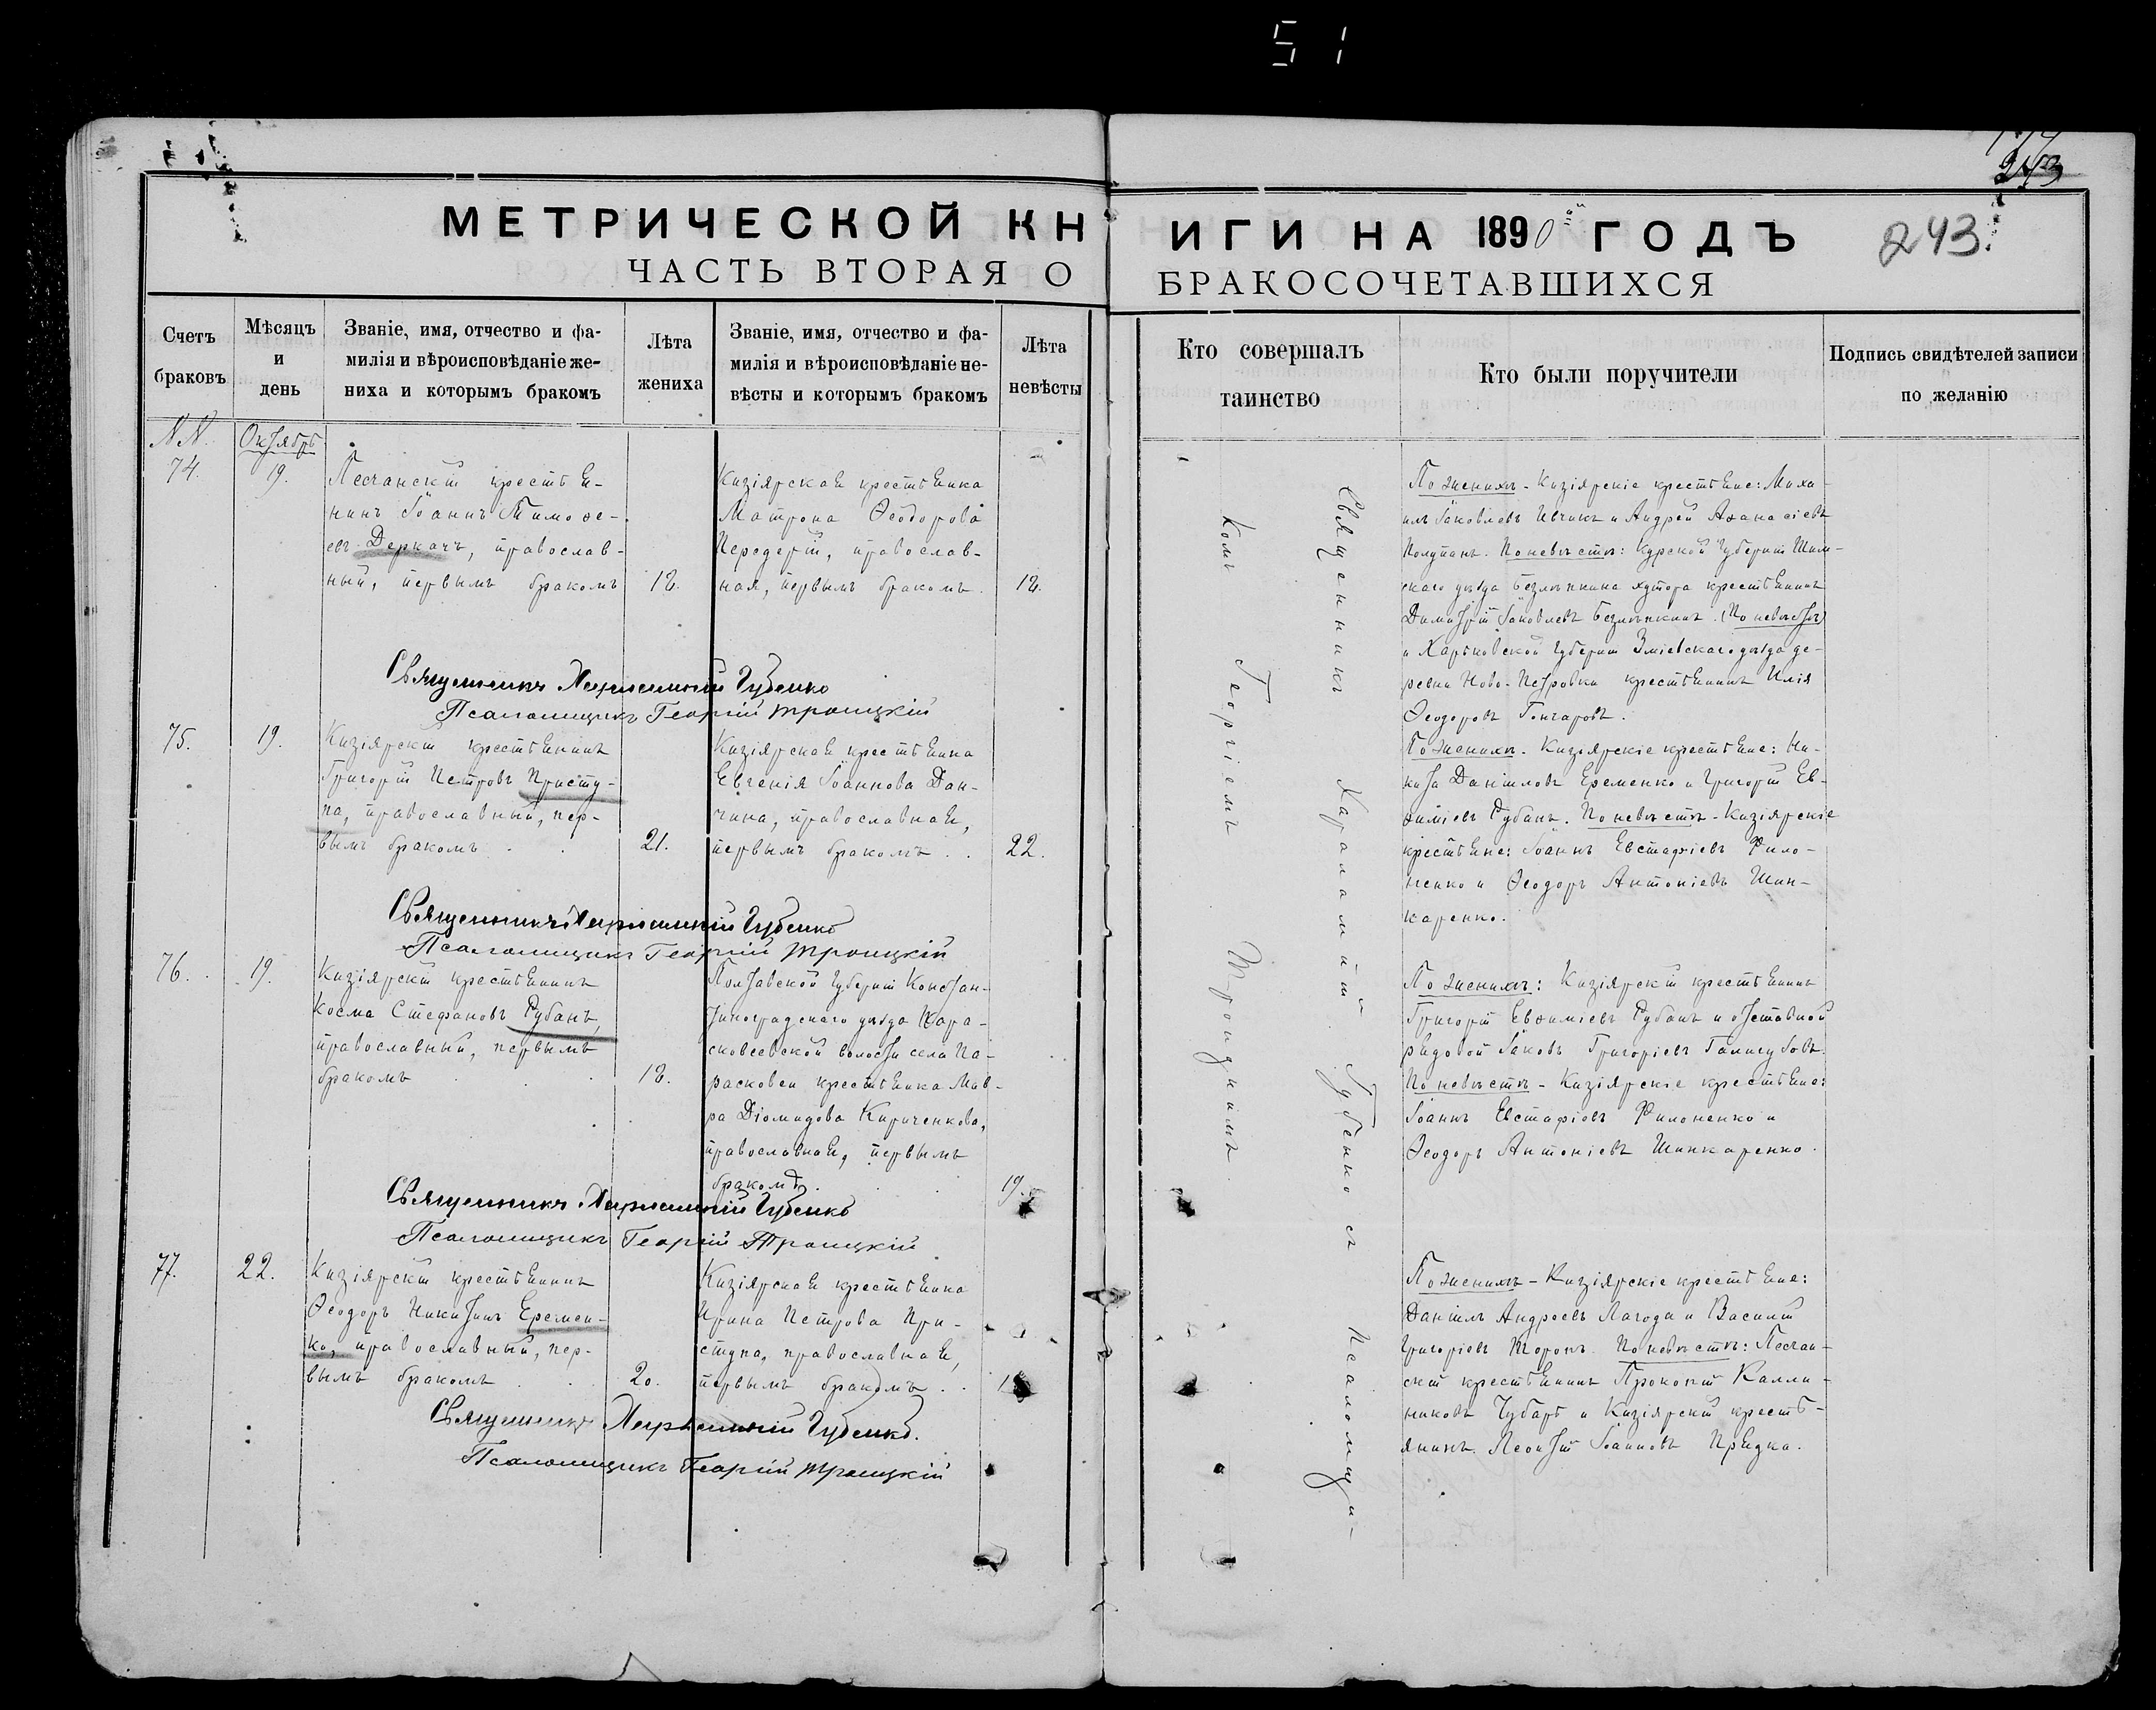 51
243
МЕТРИЧЕСКОЙ КНИГИ НА 1890й ГОДЪ
243.
ЧАСТЬ ВТОРАЯ О БРАКОСОЧЕТАВШИХСЯ
Счетъ браковъ
Мѣсяцъ и день
Званіе, имя, отчество и фа-
милія и вѣроисповѣданіе же-
ниха и которымъ бракомъ
Лѣта жениха
Званіе, имя, отчество и фа-
милія и вѣроисповѣданіе не-
вѣсты и которымъ бракомъ
Лѣта невѣсты
Кто совершалъ
таинство
Кто были поручители
Подпись свидѣтелей записи
по желанію
NN.
Октябрь
74.
19.
Песчанскій крестья-
нинъ Іоаннъ Тимоѳе-
евъ Деркачъ, православ-
ный, первымъ бракомъ
18.
Кизіярская крестьянка
Матрона Ѳеодорова
православ-
ная, первымъ бракомъ.
18.
По женихѣ - Кизіярскіе крестьяне: Миха-
илъ Іаковлевъ Ивчикъ и Андрей Аѳанасіевъ
Полупанъ. По невѣстѣ: Курской Губерніи
скаго уѣзда хутора крестьянинъ
Димитрій Іаковлевъ (По невѣстѣ)
и Харьковской Губерніи Зміевскаго уѣзда де-
ревни Ново-Петровки крестьянинъ Илія
Ѳеодоровъ Гончаровъ.
Священникъ Харлампій Губенко
Псаломщикъ Георгій Троицкій
75.
19.
Кизіярскій крестьянинъ
Григорій Петровъ Присту-
па, православный, пер-
вымъ бракомъ
21.
Кизіярская крестьянка
Евгенія Іоаннова Дан-
чина, православная,
первымъ бракомъ
22.
По женихѣ. Кизіярскіе крестьяне: Ни-
кита Даніиловъ Еременко и Григорій Ев-
ѳиміевъ Рубанъ. По невѣстѣ - Кизіярскіе
крестьяне: Іоаннъ Евстафіевъ Фило-
ненко и Ѳеодоръ Антоніевъ Шин-
каренко.
Священникъ Харлампій Губенко
Псаломщикъ Георгій Троицкій
76.
19.
Кизіярскій крестьянинъ
Косма Стефановъ Рубанъ,
православный, первымъ
бракомъ
18.
Полтавской Губерніи Констан-
тиноградскаго уѣзда
волости села Па-
расковеи крестьянка Мав-
ра Діомидова Кириченкова,
православная, первымъ
бракомъ.
19.
По женихѣ: Кизіярскій крестьянинъ
Григорій Евѳиміевъ Рубанъ и отставной
рядовой Іаковъ Григоріевъ
По невѣстѣ - Кизіярскіе крестьяне:
Іоаннъ Евстафіевъ Филоненко и
Ѳеодоръ Антоніевъ Шинкаренко.
Священникъ Харлампій Губенко
Псаломщикъ Георгій Троицкій
77.
22.
Кизіярскій крестьянинъ
Ѳеодоръ Никитинъ Еремен-
ко, православный, пер-
вымъ бракомъ
20.
Кизіярская крестьянка
Ирина Петрова При-
ступа, православная,
первымъ бракомъ
По женихѣ - Кизіярскіе крестьяне:
Даніилъ Андреевъ Лагода и Василій
Григоріевъ По невѣстѣ: Песчан-
скій крестьянинъ Прокопій Калли-
никовъ Чубаръ и Кизіярскій кресть-
янинъ Леонтій Іоанновъ Прядка.
Священникъ Харлампій Губенко.
Псаломщикъ Георгій Троицкій
Священникъ Харлампій Губенко съ Псаломщи-
комъ Георгіемъ Троицкимъ